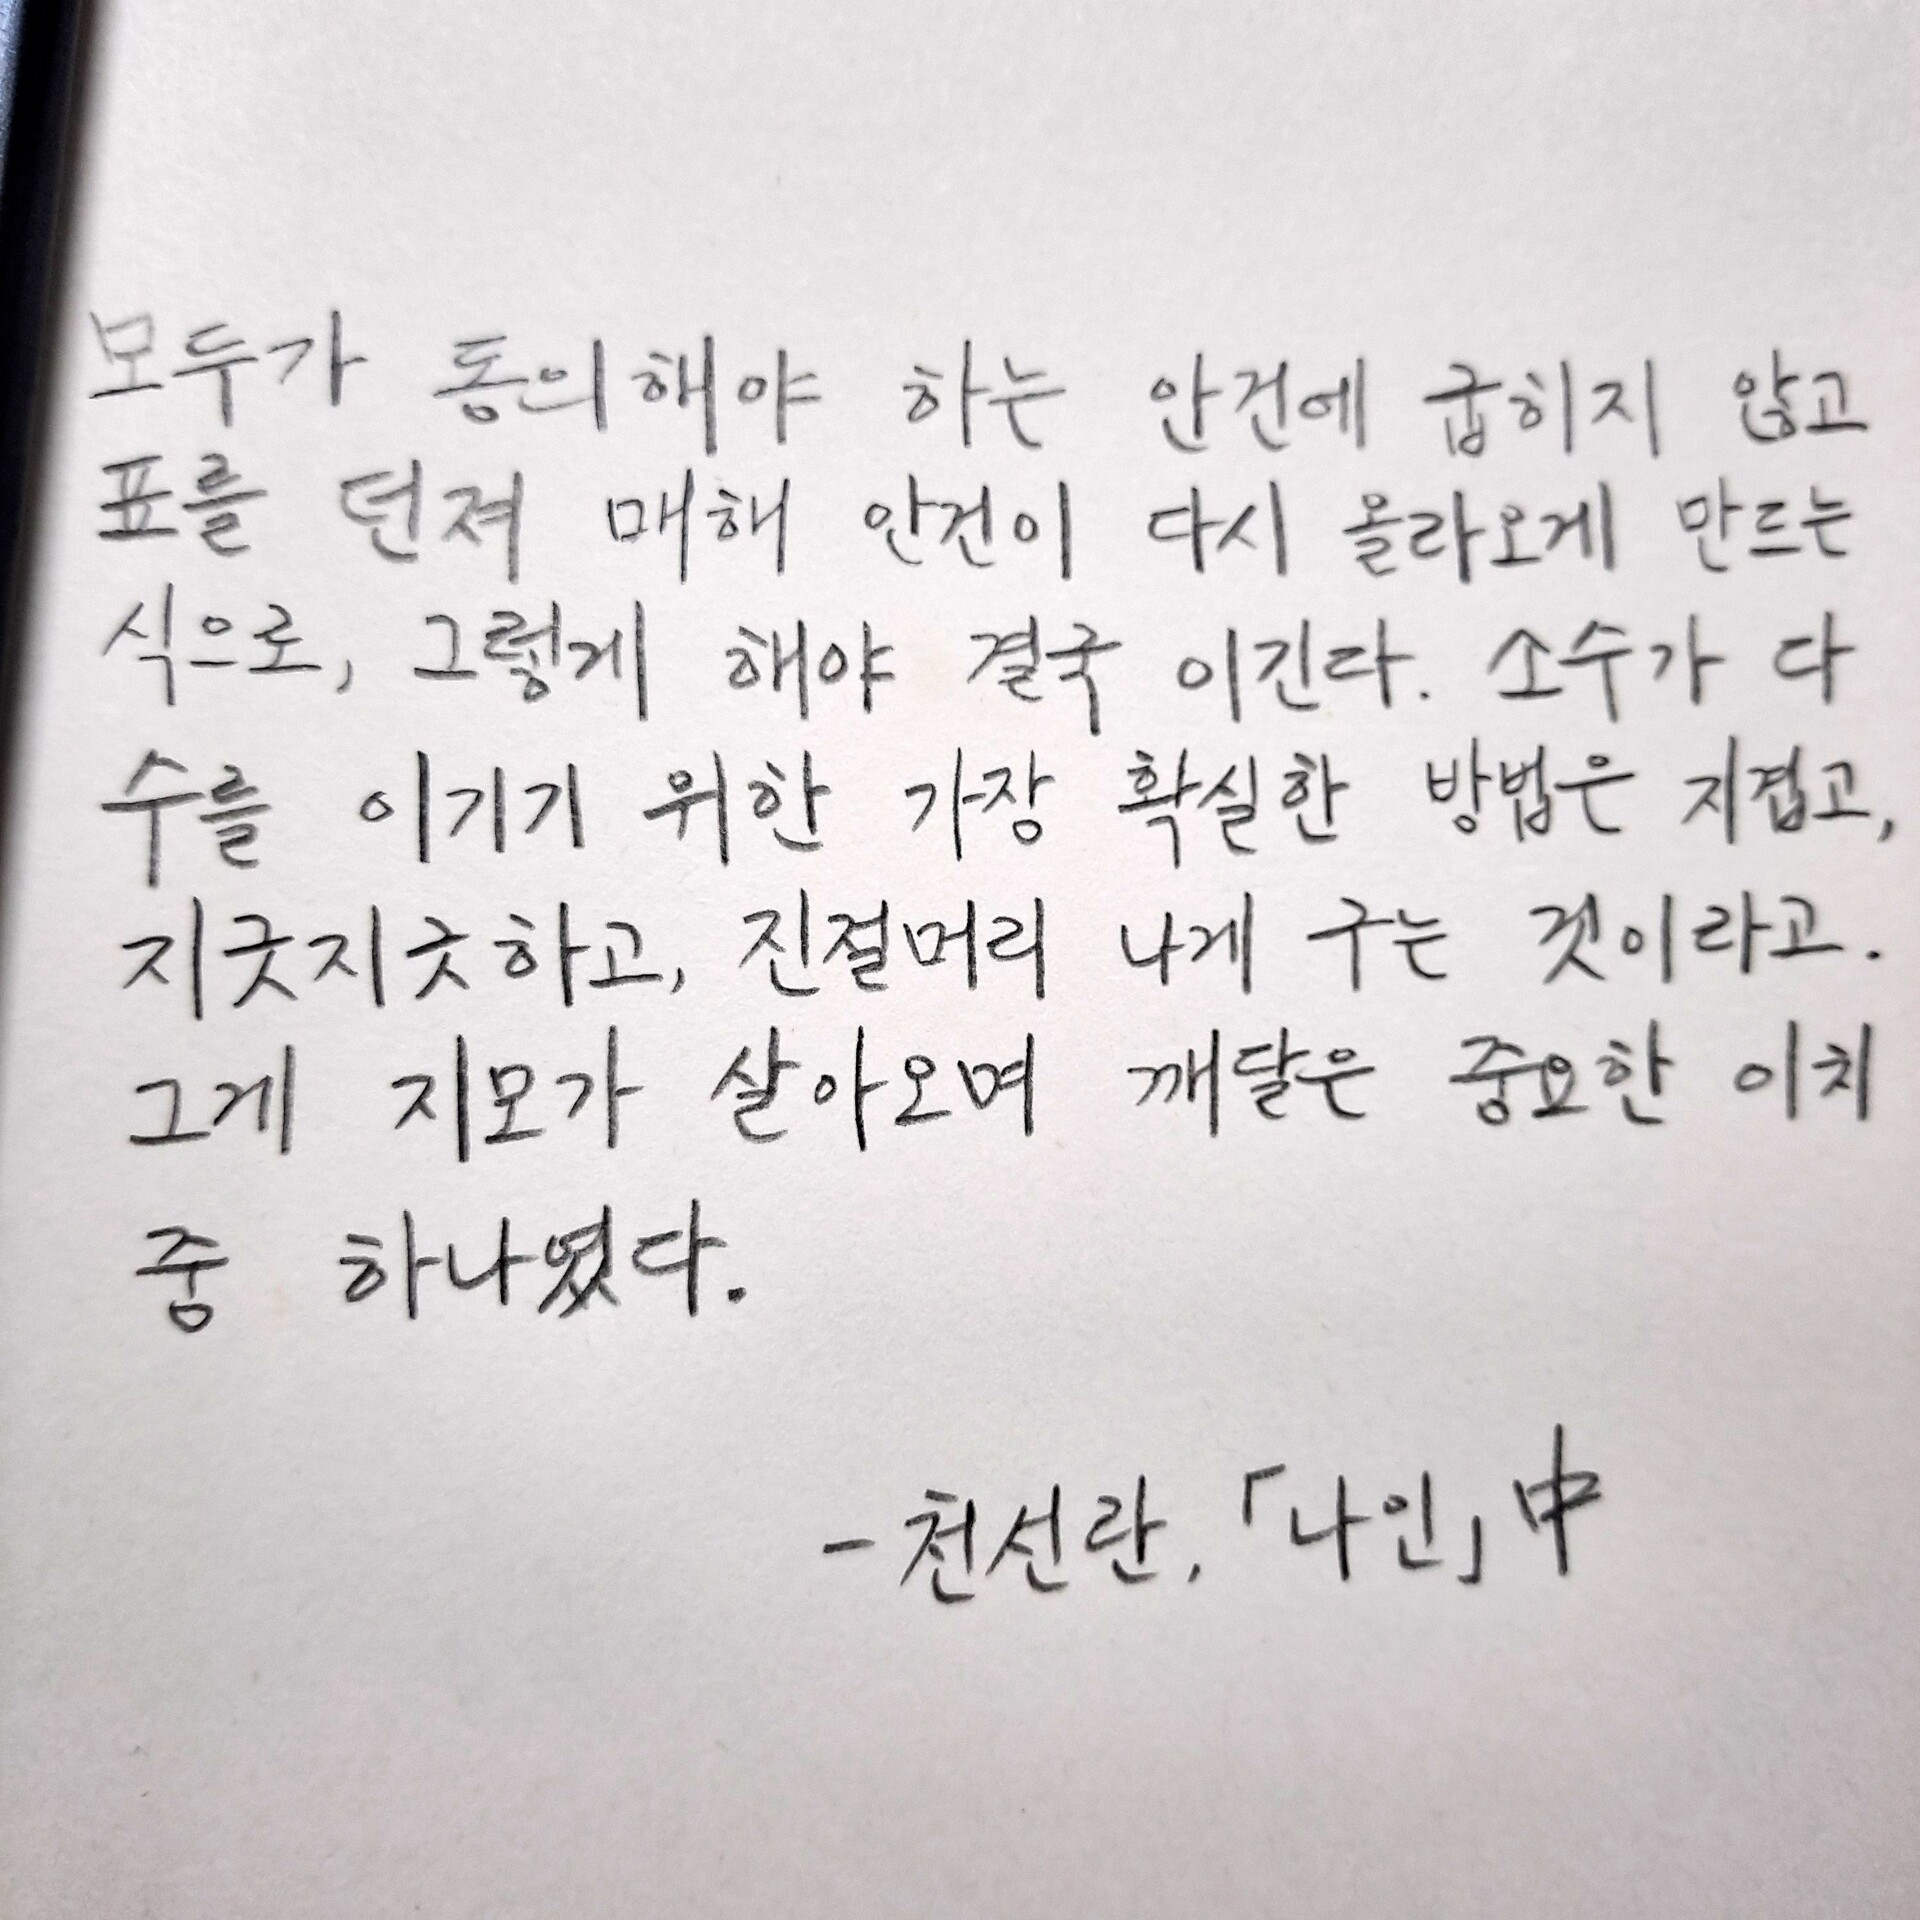 모두가 동의해야 하는 안건에 굽히지 않고
표를 던져 매해 안건이 다시 올라오게 만드는
식으로, 그렇게 해야 결국 이긴다. 소수가 다
수를 이기기 위한 가장 확실한 방법은 지겹고,
지긋지긋하고, 진절머리 나게 구는 것이라고.
그게 지모가 살아오며 깨달은 중요한 이치
중 하나였다.
- 천선란, 「나인」 中